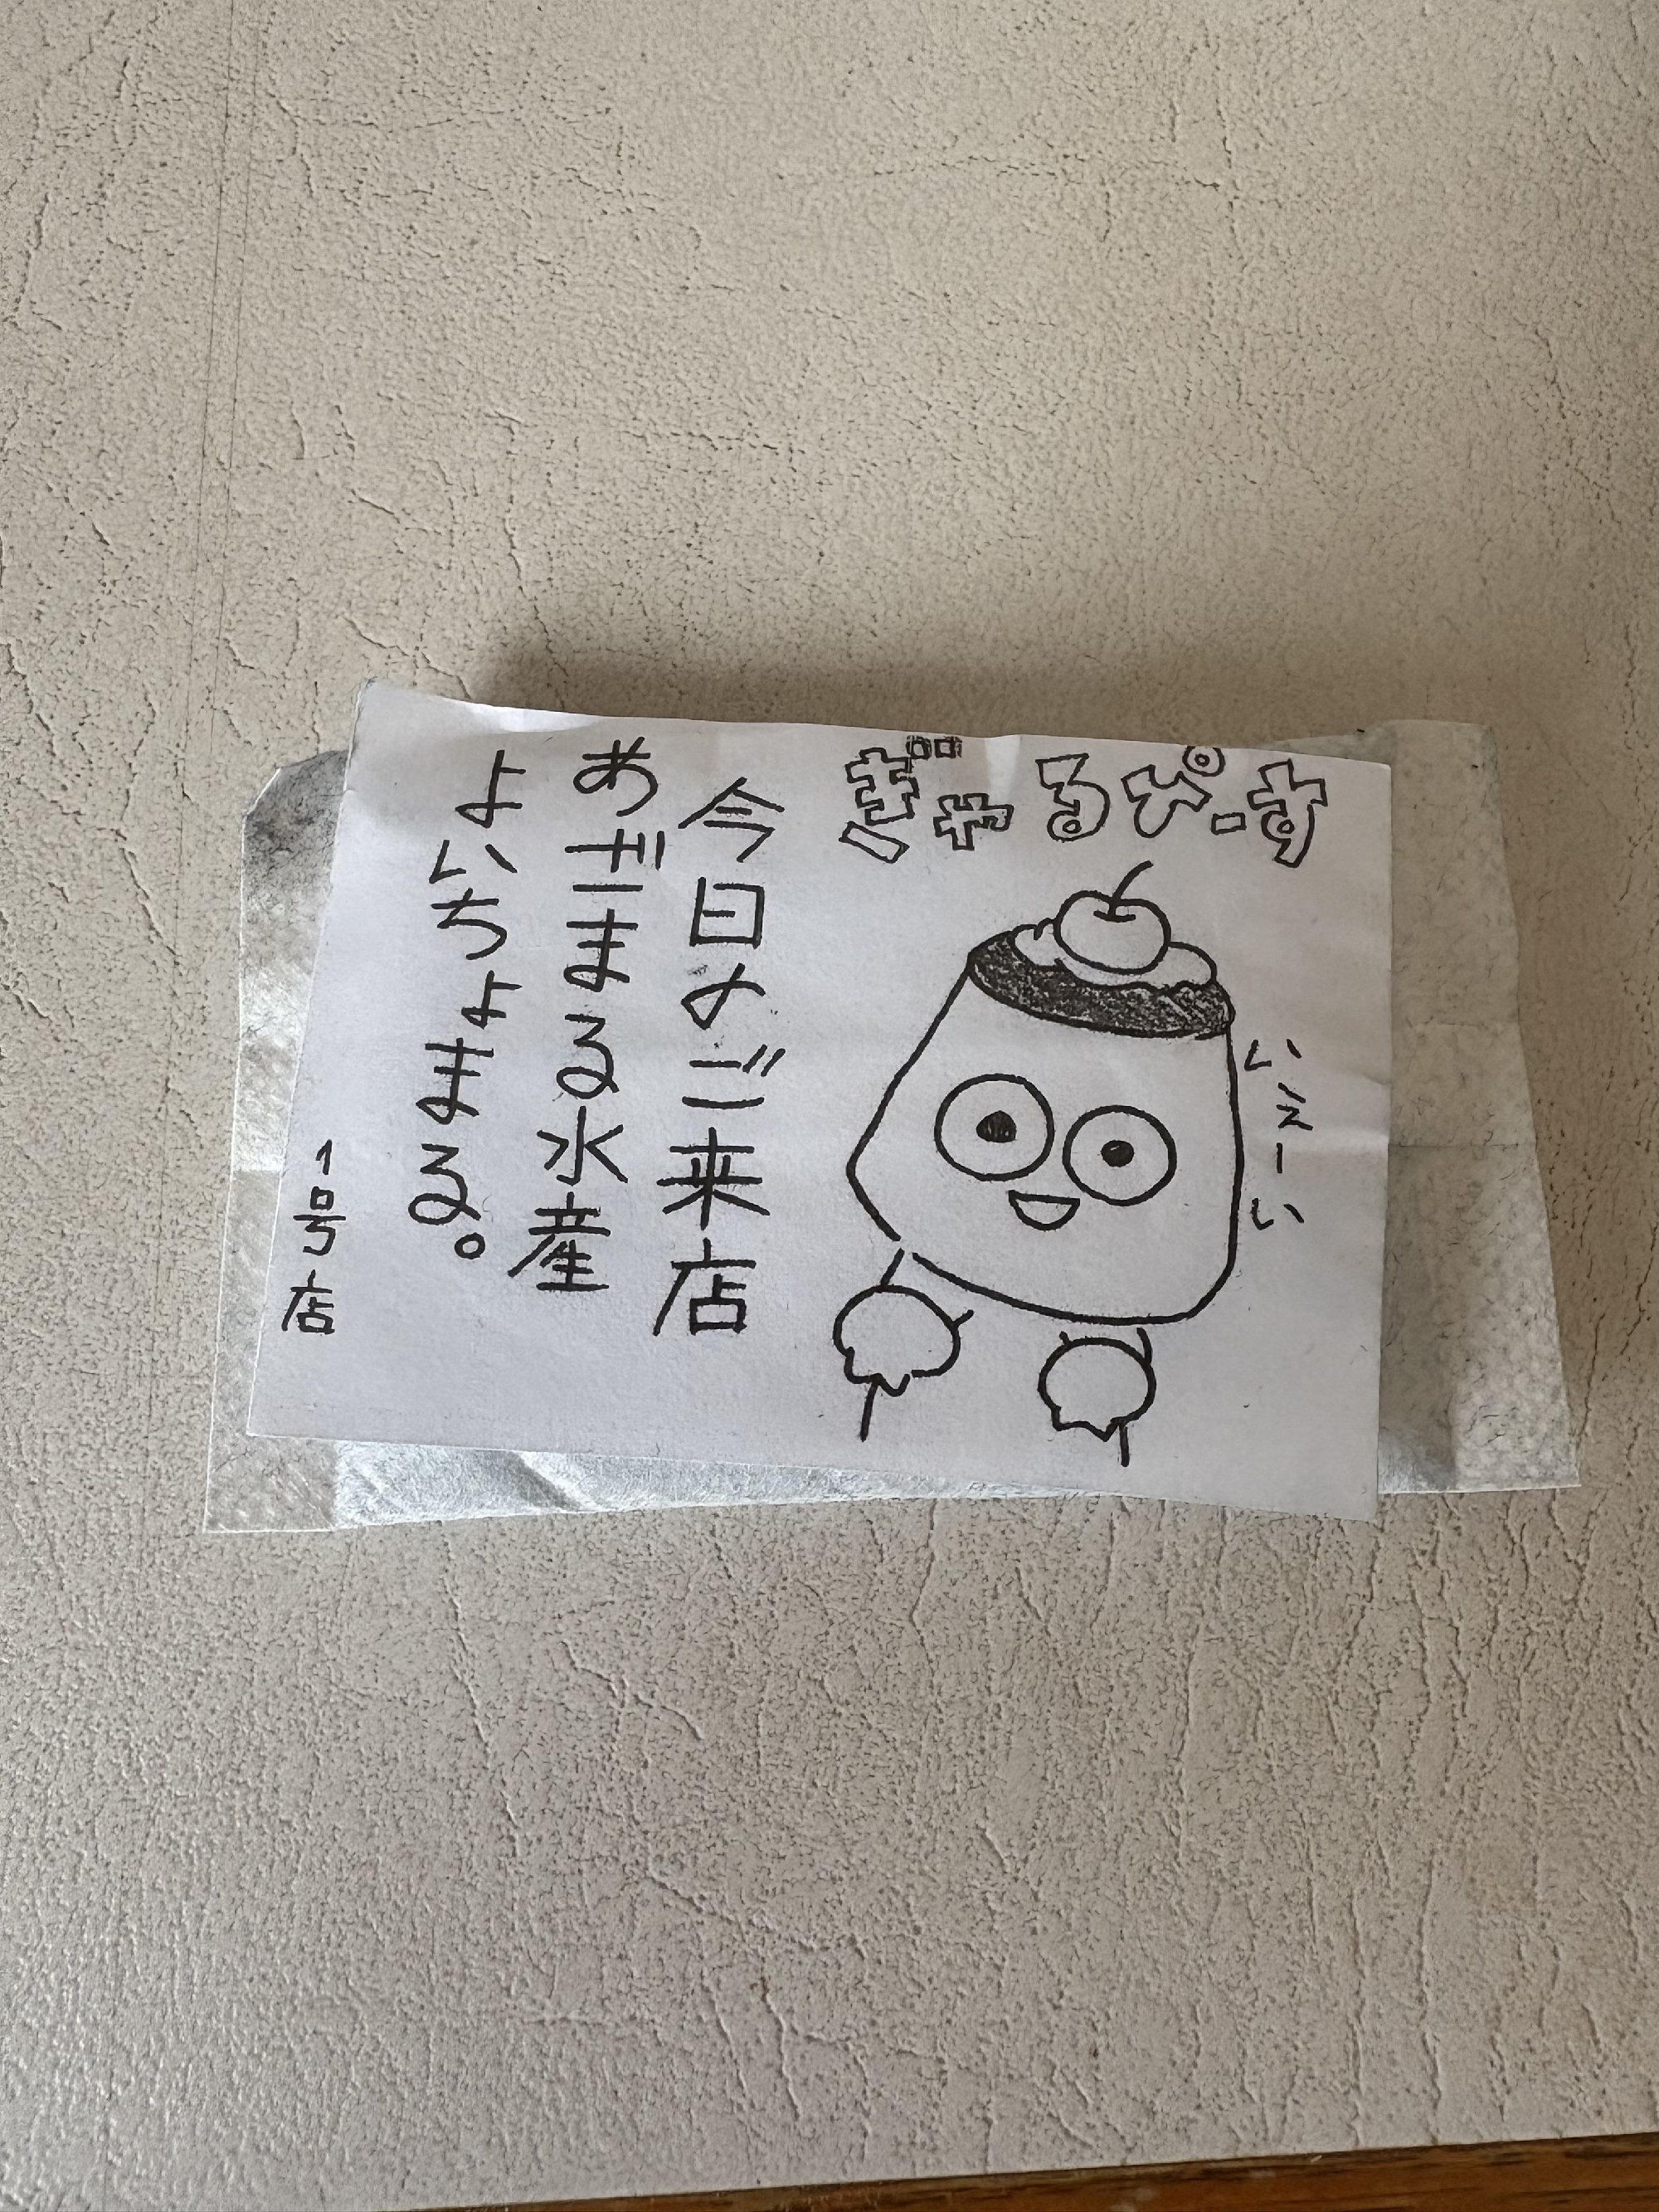 ぎゃるぴーす
いえーい
今日のご来店
あざまる水産
よいちょまる。
1号店